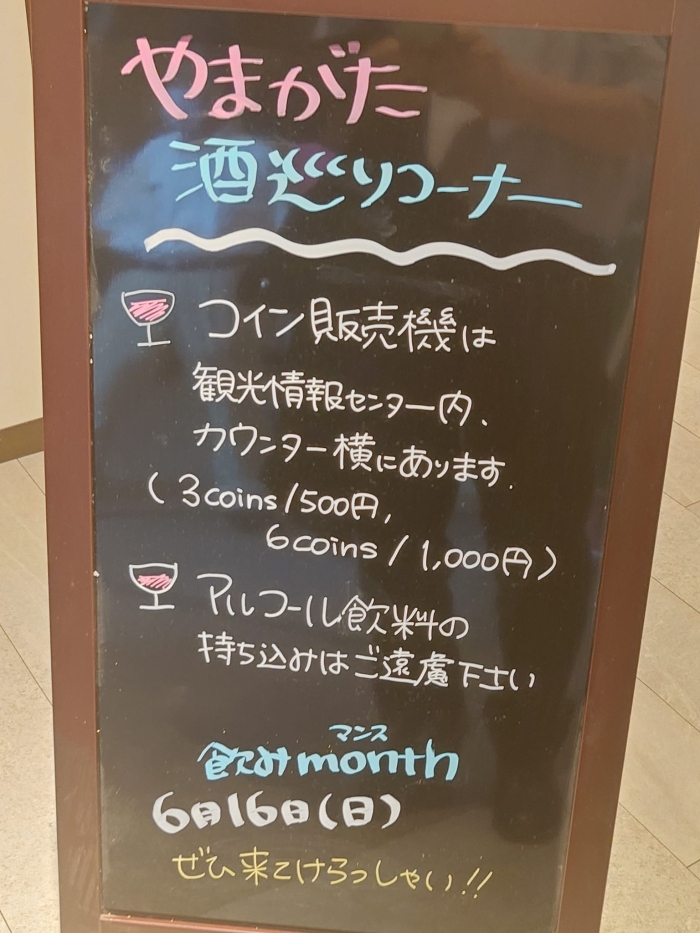 やまがた
酒巡りコーナー
コイン販売機は
観光情報センター内、
カウンター横にあります.
(3coins/500円,
6coins/1,000円)
アルコール飲料の
持ち込みはご遠慮下さい
マンス
飲みmonth
6月16日(日)
ぜひ来てけらっしゃい!!